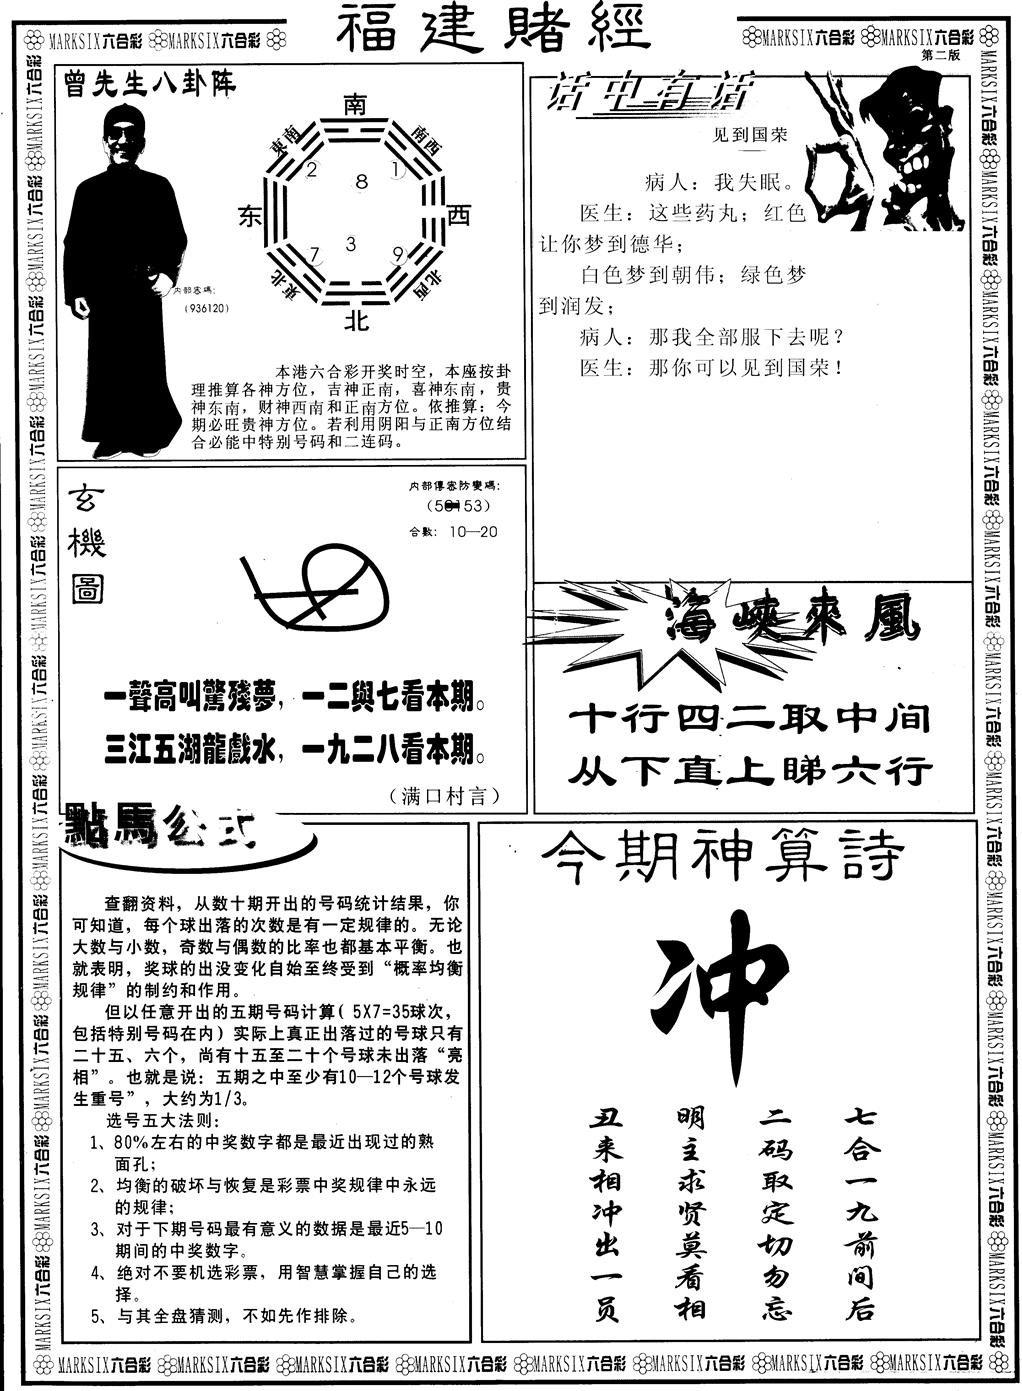 福建賭經
MARKSIX六合彩 MARKSIX六合彩
MARKSIX六合彩 MARKSIX六合彩
第二版
曾先生八卦阵
南
東南
南西
2
8
1
东
西
7
3
9
東北
北西
北
内部密碼:
(936120)
本港六合彩开奖时空，本座按卦
理推算各神方位，吉神正南，喜神东南，贵
神东南，财神西南和正南方位。依推算：今
期必旺贵神方位。若利用阴阳与正南方位结
合必能中特别号码和二连码。
话中有话
见到国荣
病人：我失眠。
医生：这些药丸；红色
让你梦到德华；
白色梦到朝伟；绿色梦
到润发；
病人：那我全部服下去呢？
医生：那你可以见到国荣！
玄機圖
内部傳密防變碼:
合數: 10—20
一聲高叫驚殘夢，一二與七看本期。
三江五湖龍戲水，一九二八看本期。
（满口村言）
海峽來風
十行四二取中间
从下直上睇六行
點馬公式
查翻资料，从数十期开出的号码统计结果，你
可知道，每个球出落的次数是有一定规律的。无论
大数与小数，奇数与偶数的比率也都基本平衡。也
就表明，奖球的出没变化自始至终受到“概率均衡
规律”的制约和作用。
但以任意开出的五期号码计算( 5X7=35球次，
包括特别号码在内) 实际上真正出落过的号球只有
二十五、六个，尚有十五至二十个号球未出落“亮
相”。也就是说：五期之中至少有10—12个号球发
生重号”，大约为1/3。
选号五大法则:
1、80%左右的中奖数字都是最近出现过的熟
面孔；
2、均衡的破坏与恢复是彩票中奖规律中永远
的规律；
3、对于下期号码最有意义的数据是最近5—10
期间的中奖数字。
4、绝对不要机选彩票，用智慧掌握自己的选
择。
5、与其全盘猜测，不如先作排除。
今期神算詩
冲
七合一九前间后
二码取定切勿忘
明主求贤莫看相
丑来相冲出一员
MARKSIX六合彩 MARKSIX六合彩 MARKSIX六合彩 MARKSIX六合彩 MARKSIX六合彩 MARKSIX六合彩 MARKSIX六合彩 MARKSIX六合彩